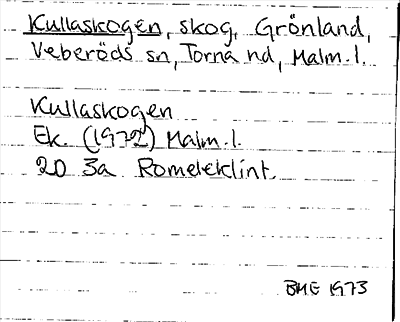 Kullaskogen, skog, Grönland,
Veberöds sn, Torna hd, Malm.l.
Kullaskogen
Ek. (1972) Malm.l.
2D 3a Romeleklint.
BME 1973